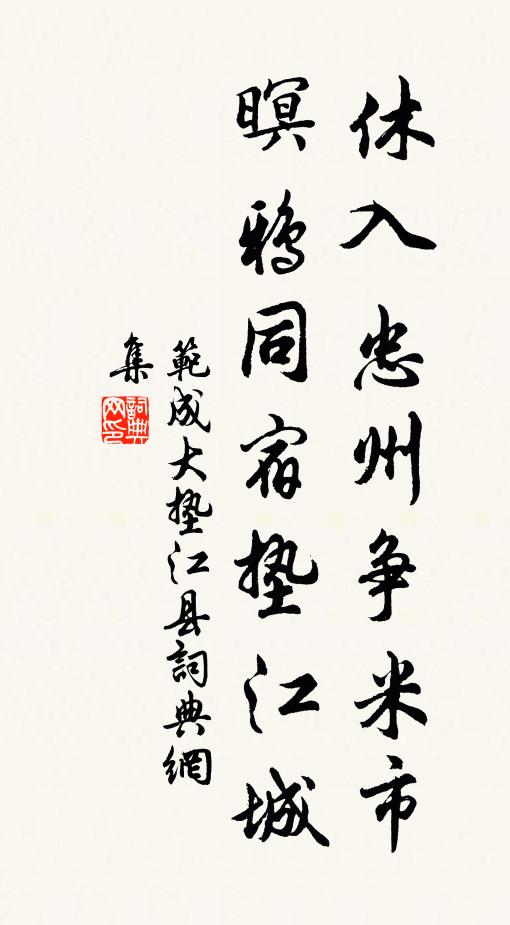 休入忠州争米市
暝鸦同宿垫江城
範成大垫江县詞典網
集
詞典网印